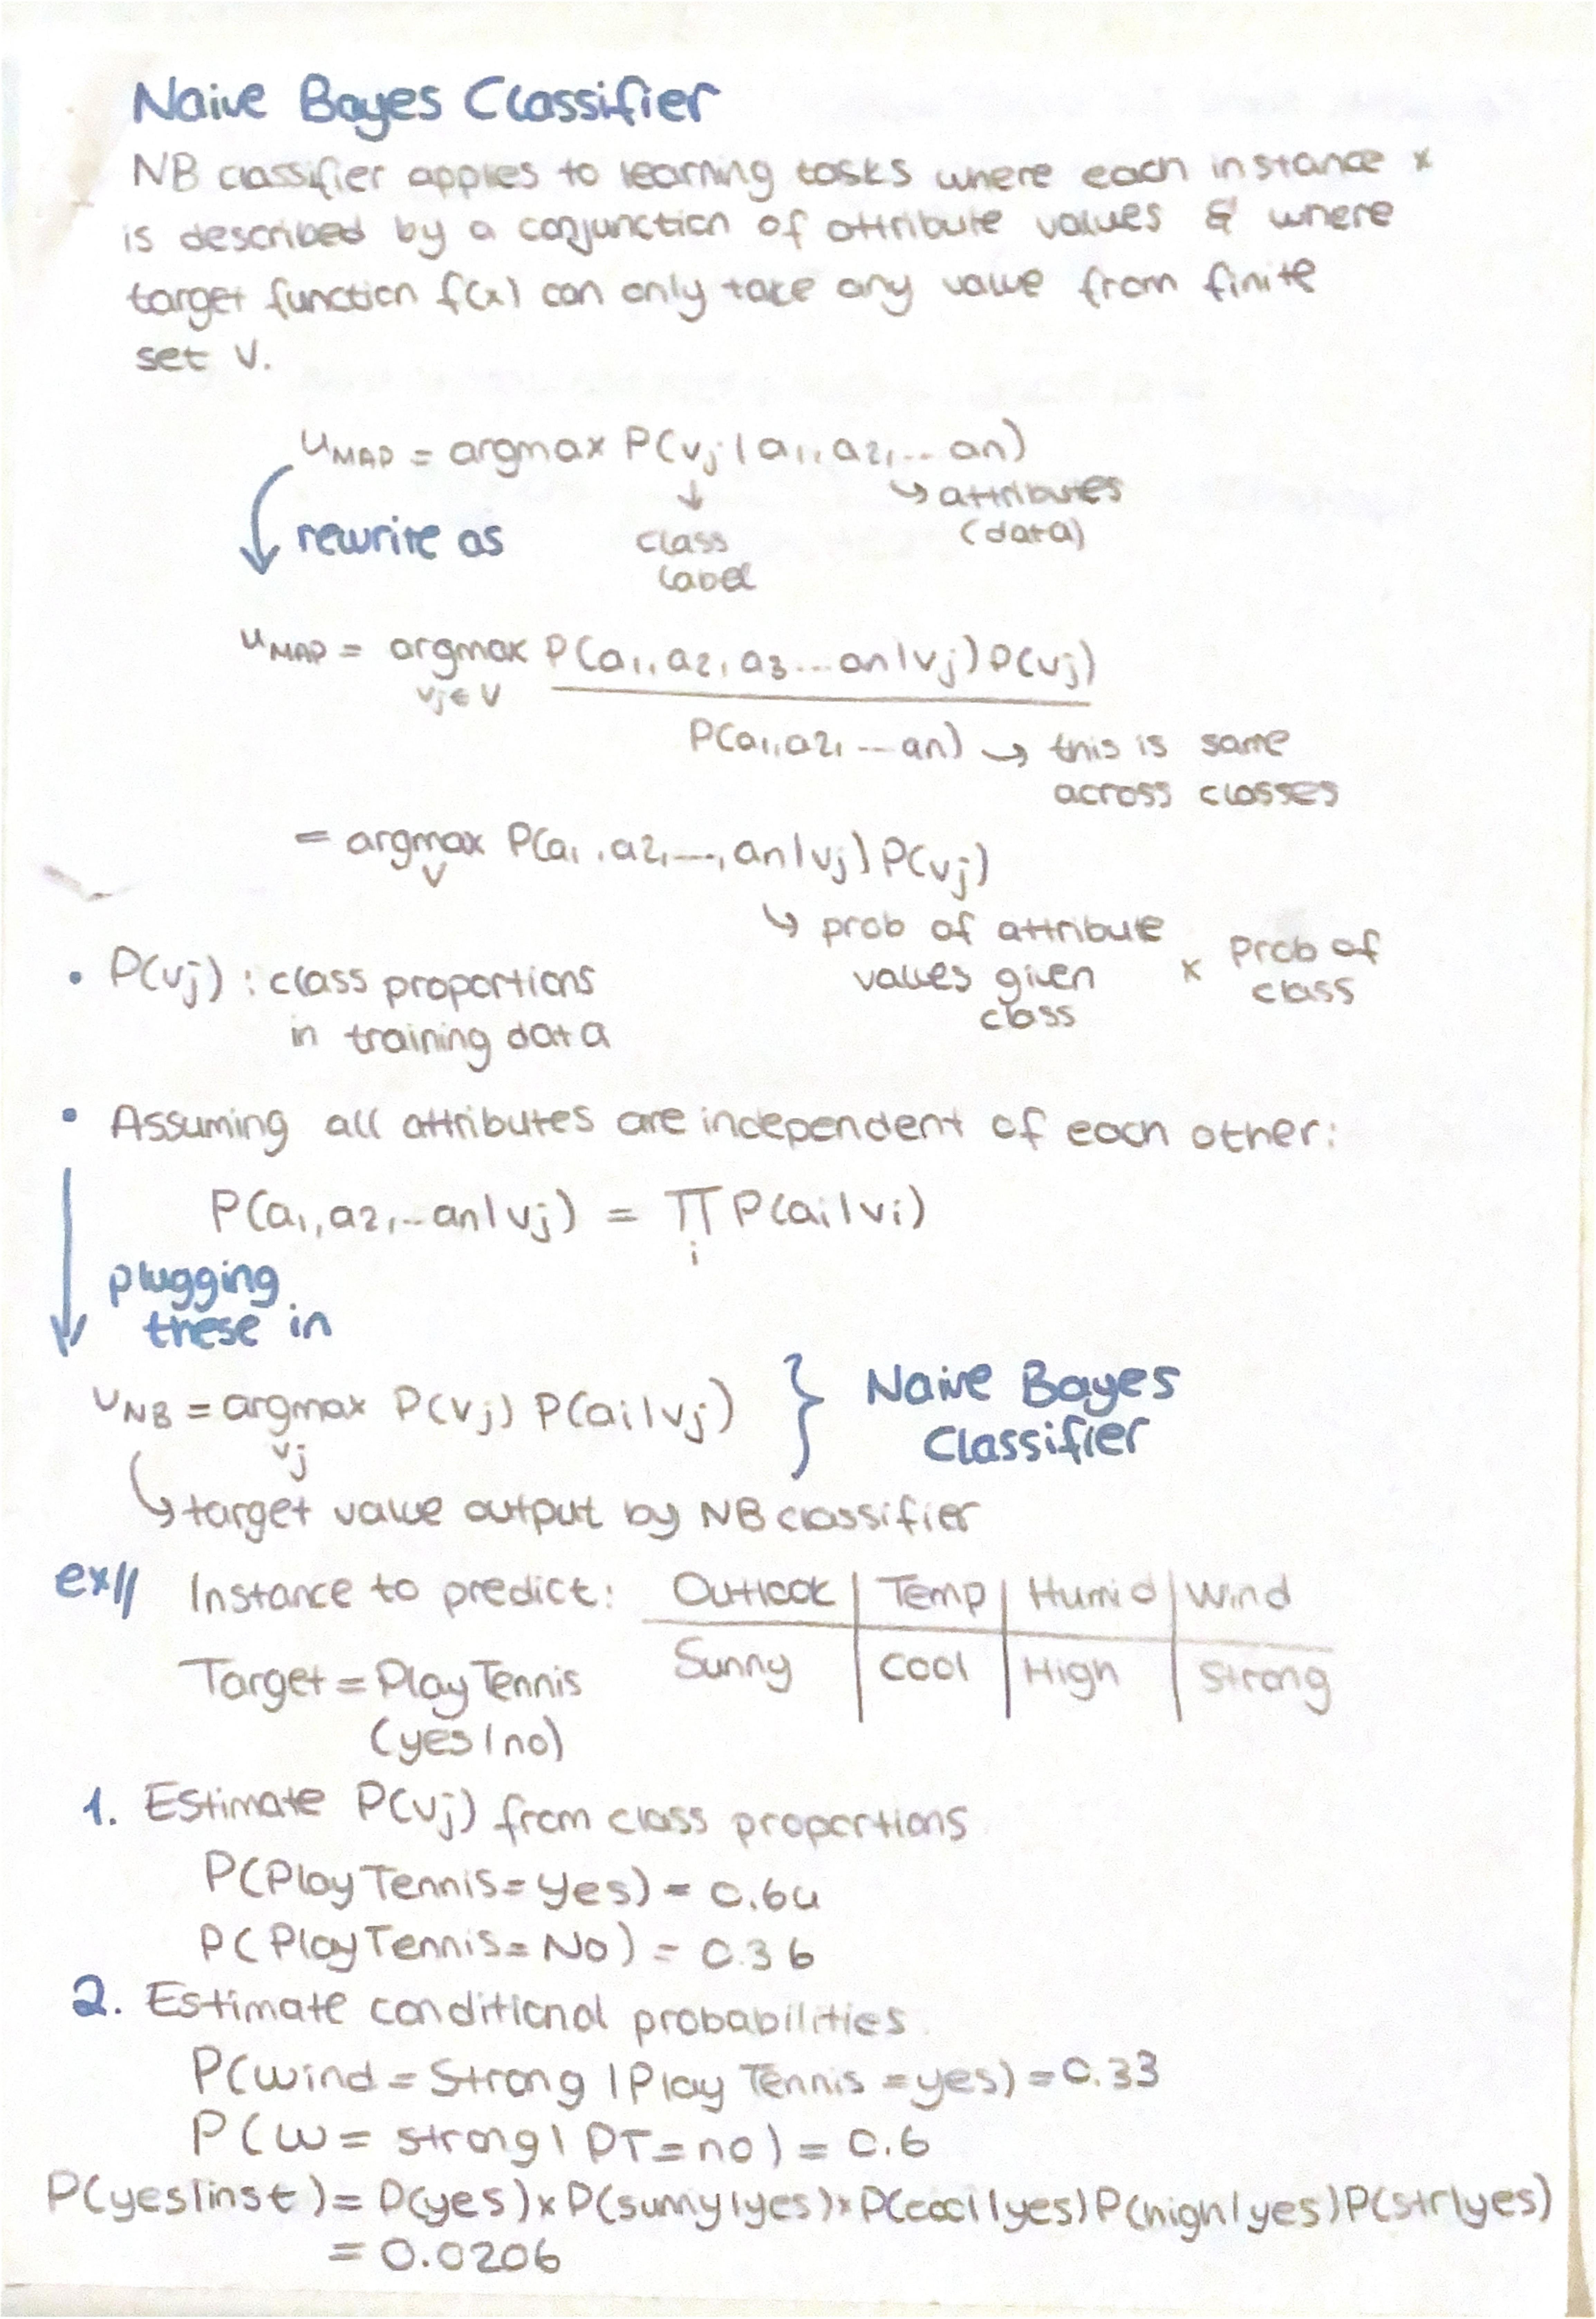 Naive Bayes Classifier
NB classifier applies to learning tasks where each instance x
is described by a conjunction of attribute values & where
target function f(x) can only take any value from finite
set V.
υMAP = argmax P(vj | a1, a2, ... an)
↓ ↳ attributes
rewrite as class (data)
label
υMAP = argmax P(a1, a2, a3 ... an | vj) P(vj)
vj ∈ V
P(a1, a2, ... an) → this is same
across classes
= argmax P(a1, a2, ..., an | vj) P(vj)
V
↳ prob of attribute values given class x Prob of class
• P(vj) : class proportions
in training data
• Assuming all attributes are independent of each other:
P(a1, a2, .. an | vj) = ∏ P(ai | vi)
i
plugging
these in
υNB = argmax P(vj) P(ai | vj) } Naive Bayes
vj Classifier
↳ target value output by NB classifier
ex// Instance to predict: Outlook | Temp | Humid | Wind
Sunny | Cool | High | Strong
Target = PlayTennis
(yes/no)
1. Estimate P(vj) from class proportions
P(PlayTennis = yes) = 0.64
P(PlayTennis = No) = 0.36
2. Estimate conditional probabilities
P(wind = Strong | Play Tennis = yes) = 0.33
P(W = strong | PT = no) = 0.6
P(yes|inst) = P(yes) x P(sunny|yes) x P(cool|yes) P(high|yes) P(str|yes)
= 0.0206